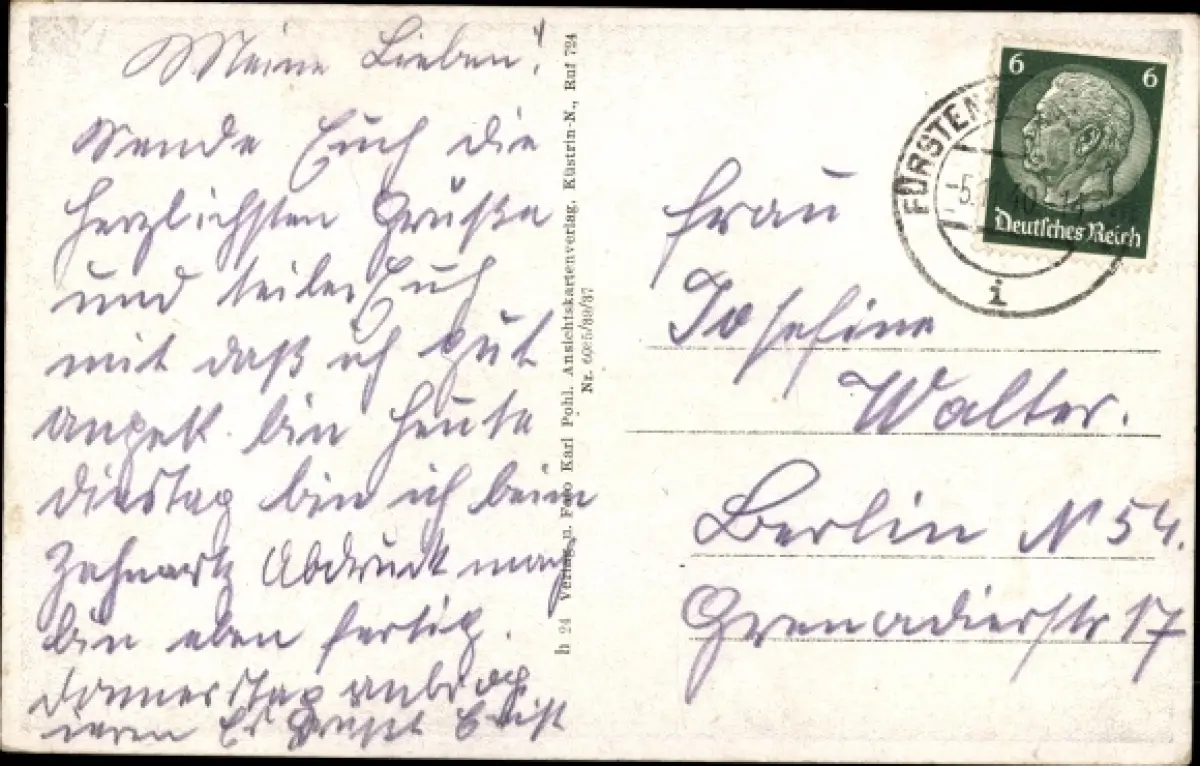 Meine Lieben!
Sende Euch die
herzlichsten Grüße
und teile Euch
mit daß ich gut
angek. bin heute
dienstag bin ich beim
Zahnartz Abdruck
bin eben fertig.
donnerstag
Es Grüßt
h 24 Verlag u. Foto Karl Pohl, Ansichtskartenverlag, Küstrin-N., Ruf 724
Nr. 6025/39/37
6 6
Deutsches Reich
FÜRSTEN
-5.1 40
i
Frau
Josefine
Walter.
Berlin N 54.
Grenadierstr 17